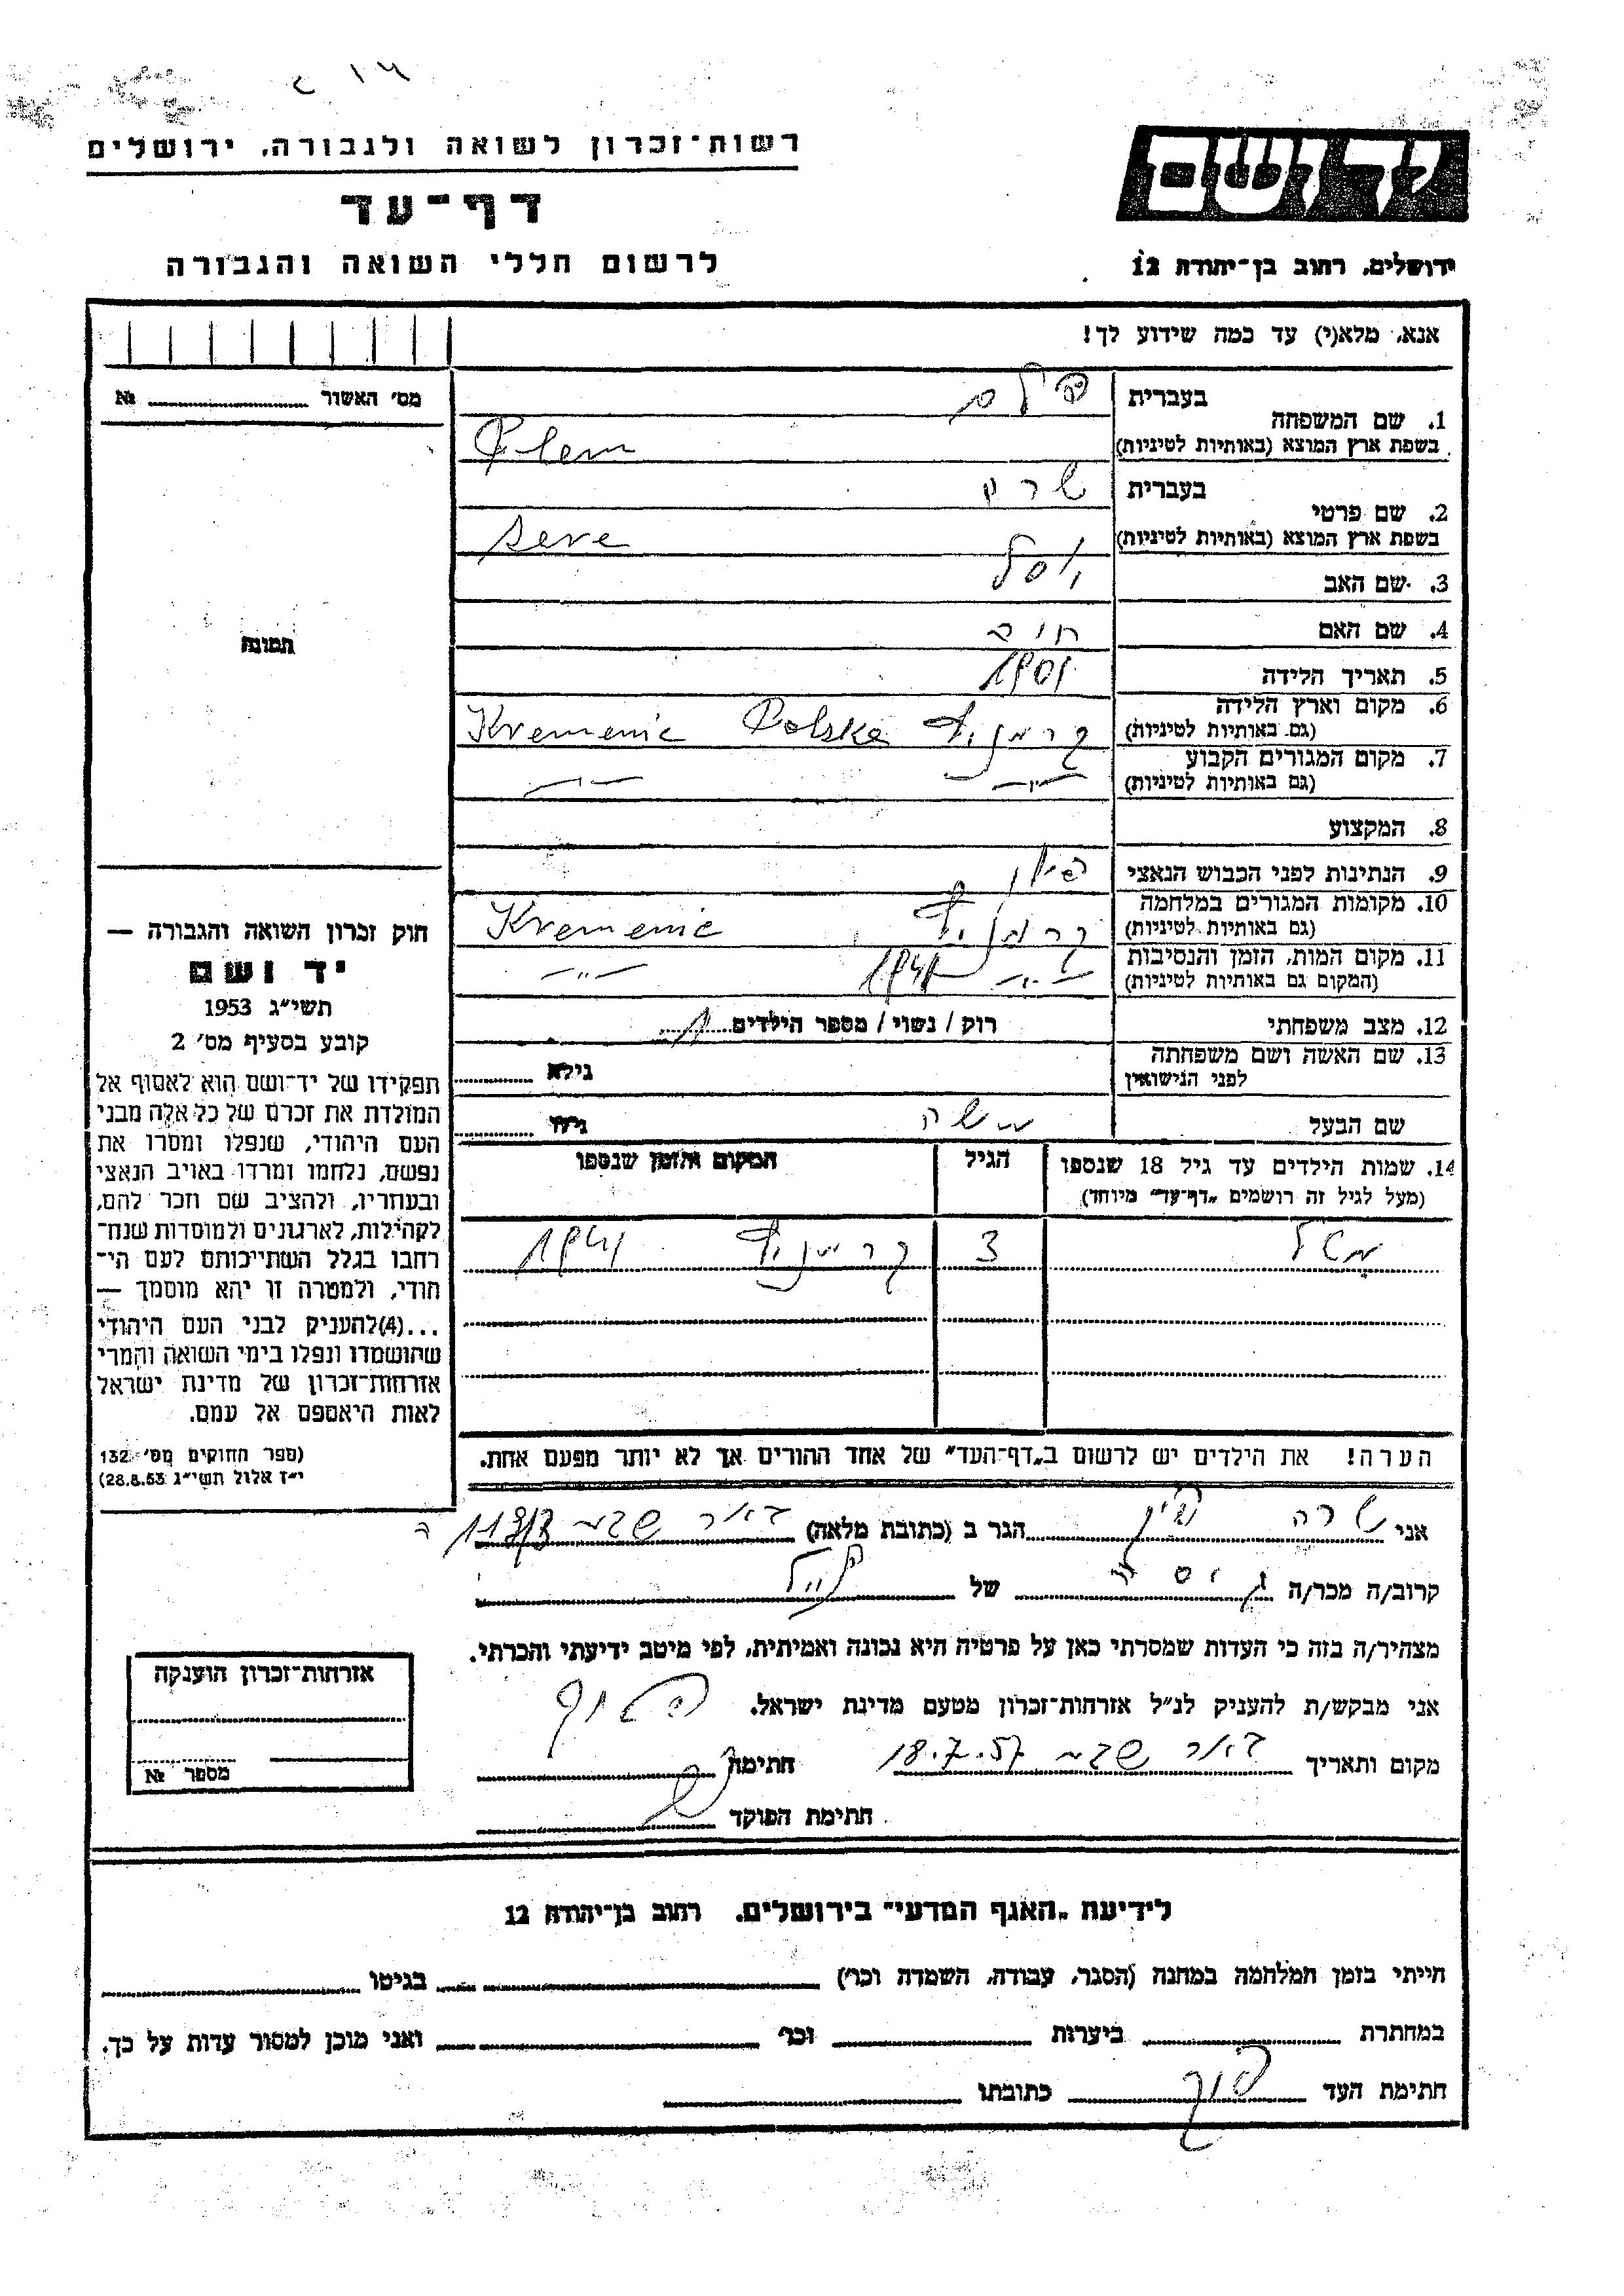 רשות־זכרון לשואה ולגבורה, ירושלים
דף־עד
לרשום חללי השואה והגבורה
יד ושם
ירושלים, רחוב בן־יהודה 12
אנא, מלא(י) עד כמה שידוע לך!
מס׳ האשור № 
1. שם המשפחה
בעברית פלם
בשפת ארץ המוצא (באותיות לטיניות) Flem
2. שם פרטי
בעברית שרה
בשפת ארץ המוצא (באותיות לטיניות) Sere
3. שם האב יוסל
4. שם האם
5. תאריך הלידה 1901
6. מקום וארץ הלידה
(גם באותיות לטיניות) Kremenic Polske
7. מקום המגורים הקבוע
(גם באותיות לטיניות) –〃– –〃–
8. המקצוע
9. הנתינות לפני הכבוש הנאצי פולין
10. מקומות המגורים במלחמה
(גם באותיות לטיניות) Kremenic
11. מקום המות, הזמן והנסיבות
(המקום גם באותיות לטיניות) –〃– 1941 –〃–
12. מצב משפחתי רווק / נשוי / מספר הילדים 1
13. שם האשה ושם משפחתה
לפני הנישואין גילא
שם הבעל משה גילו
14. שמות הילדים עד גיל 18 שנספו
(מעל לגיל זה רושמים „דף־עד״ מיוחד)
הגיל
המקום והזמן שנספו
3 1941
הערה! את הילדים יש לרשום ב„דף־העד״ של אחד ההורים אך לא יותר מפעם אחת.
תמונה
חוק זכרון השואה והגבורה —
יד ושם
תשי״ג 1953
קובע בסעיף מס׳ 2
תפקידו של יד־ושם הוא לאסוף אל
המולדת את זכרם של כל אלה מבני
העם היהודי, שנפלו ומסרו את
נפשם, נלחמו ומרדו באויב הנאצי
ובעוזריו, ולהציב שם וזכר להם,
לקהילות, לארגונים ולמוסדות שנח־
רבו בגלל השתייכותם לעם הי־
הודי, ולמטרה זו יהא מוסמך —
...(4)להעניק לבני העם היהודי
שהושמדו ונפלו בימי השואה והמרי
אזרחות־זכרון של מדינת ישראל
לאות היאספם אל עמם.
(ספר החוקים מס׳ 132
י״ז אלול תשי״ג 28.8.53)
אני שרה הגר ב (כתובת מלאה) באר שבע
קרוב/ה מכר/ה גיסה של
מצהיר/ה בזה כי העדות שמסרתי כאן על פרטיה היא נכונה ואמיתית, לפי מיטב ידיעתי והכרתי.
אני מבקש/ת להעניק לנ״ל אזרחות־זכרון מטעם מדינת ישראל.
מקום ותאריך באר שבע 18.7.57 חתימה
חתימת הפוקד
אזרחות־זכרון הוענקה
מספר №
לידיעת „האגף המדעי״ בירושלים, רחוב בן־יהודה 12
הייתי בזמן המלחמה במחנה (הסגר, עבודה, השמדה וכו׳) בגיטו
במחתרת ביערות וכו׳ ואני מוכן למסור עדות על כך.
חתימת העד כתובתו